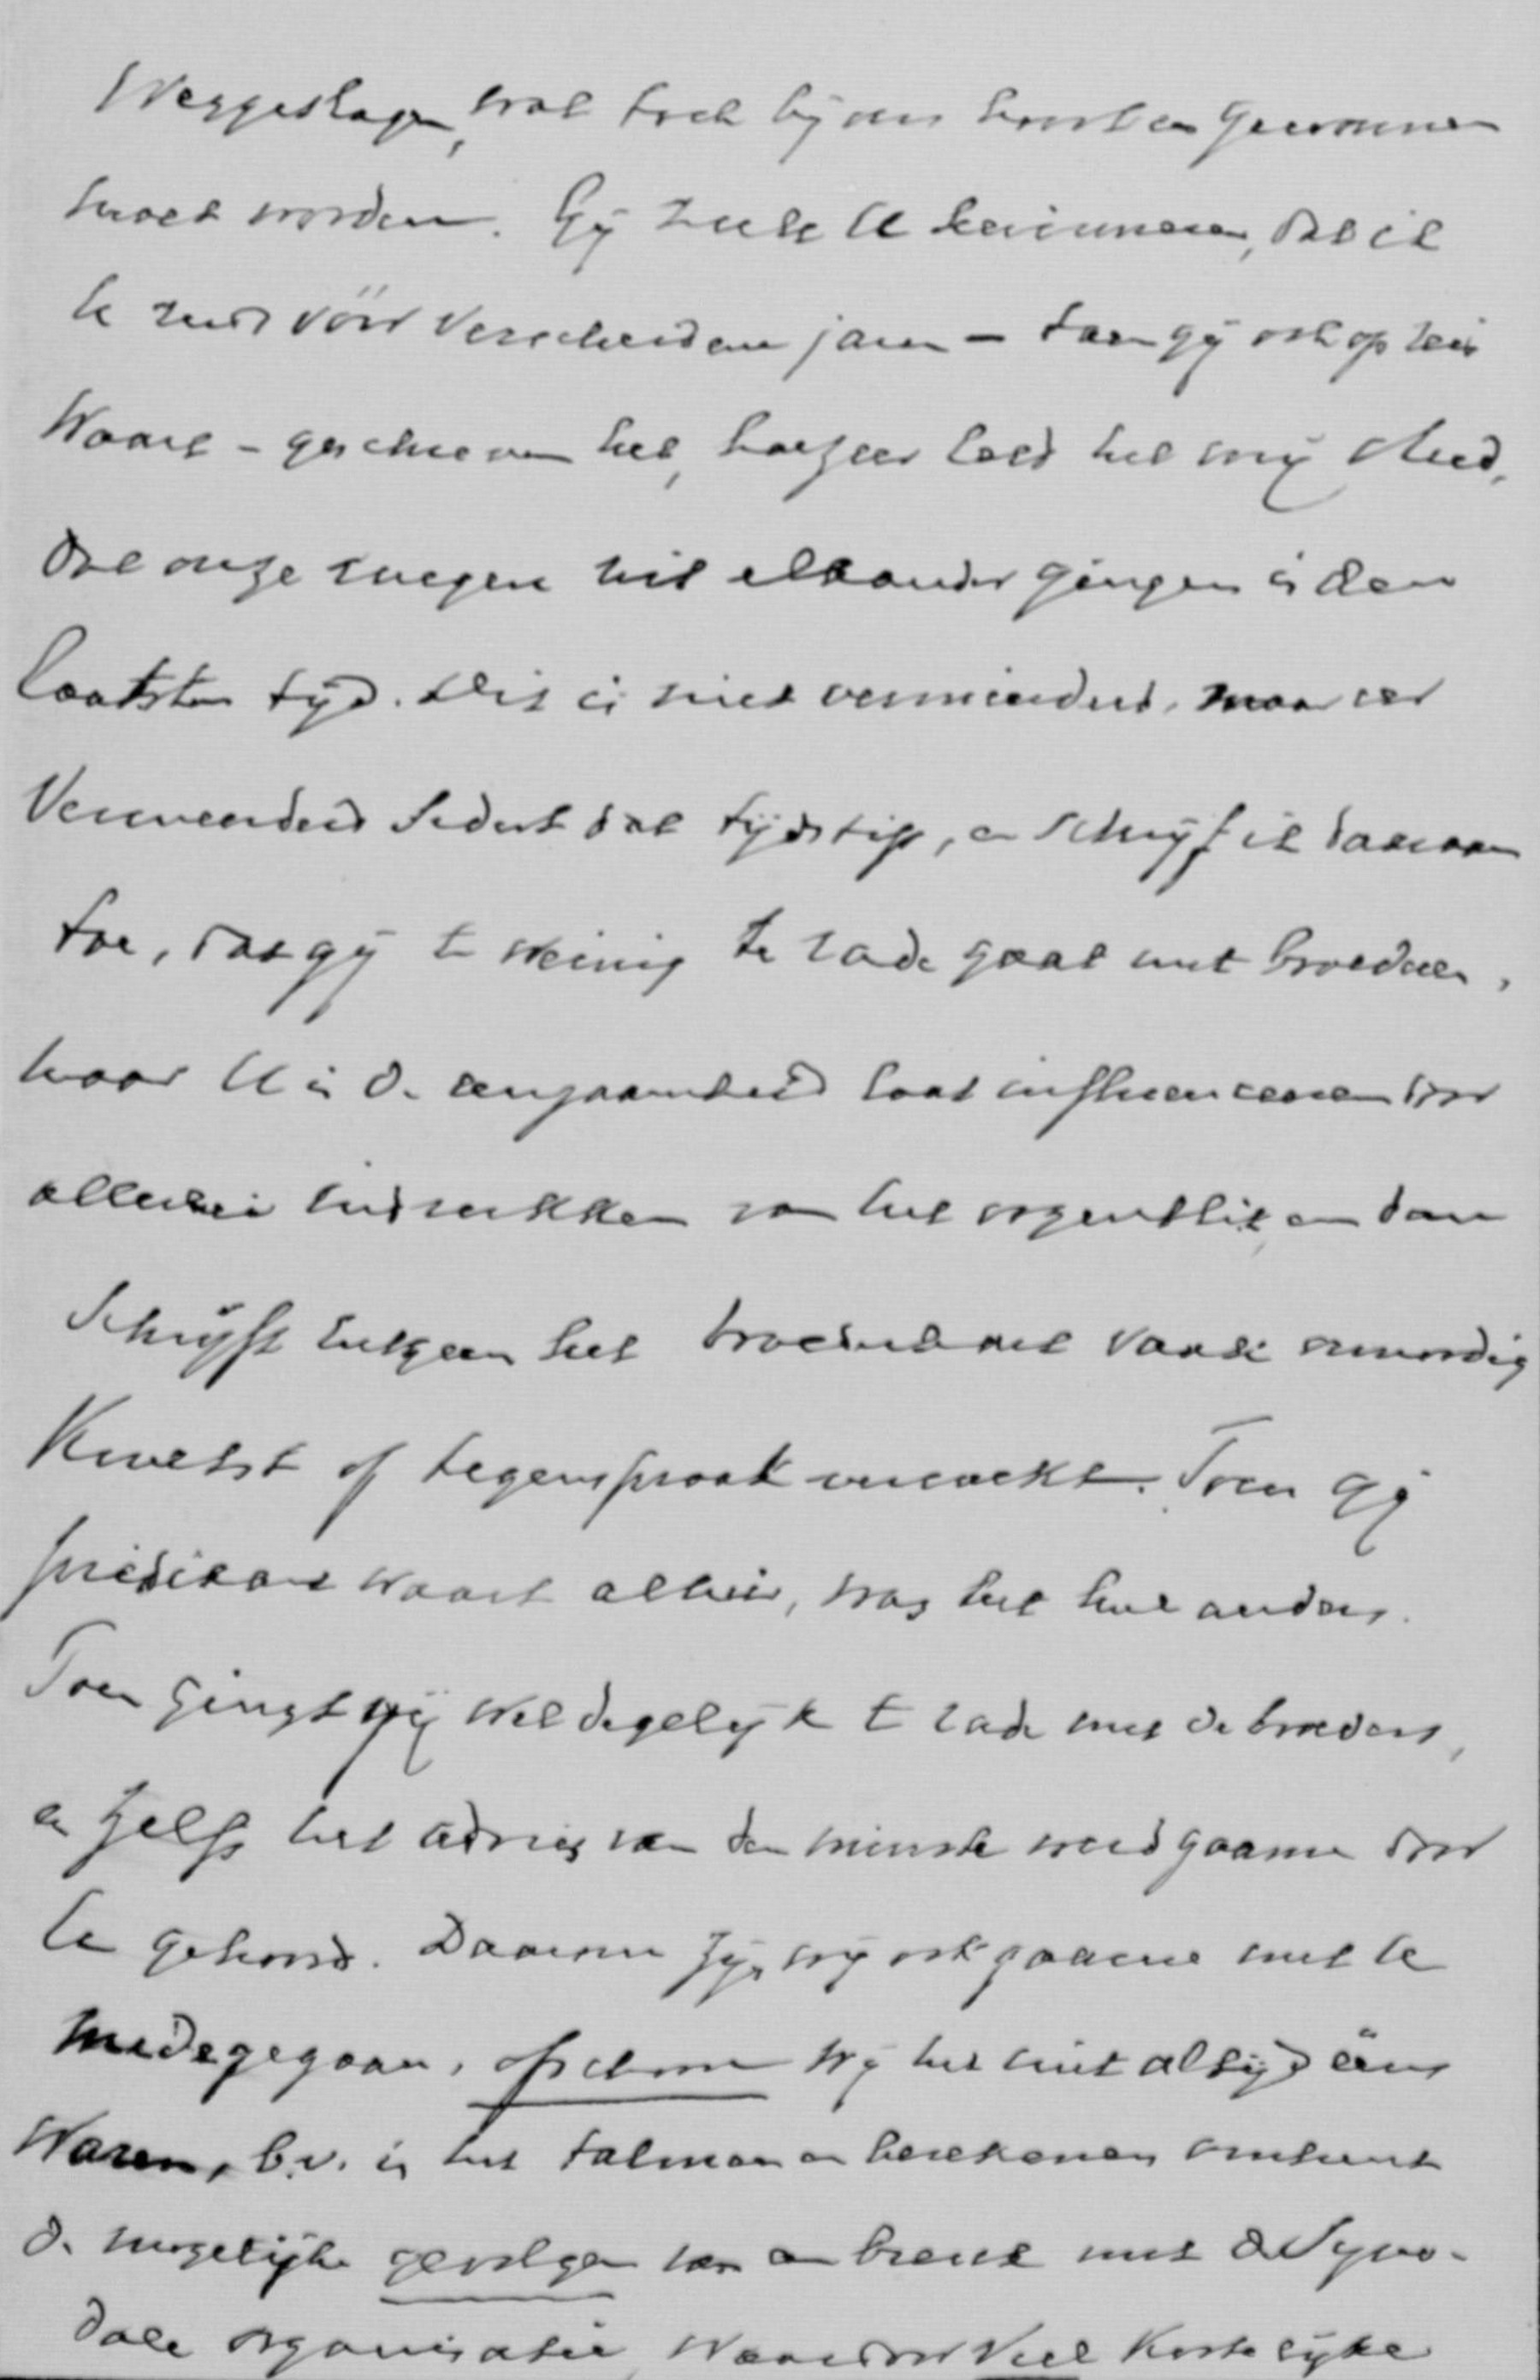 Weggeslagen, wat toch bij ons horten gewonnen
moet worden. Gij zult U herinneren, dat ik
U reeds vóór verscheidene jaren - toen gij ook op reis
Waart - geschreven heb, hoezeer leed het mij deed,
dat onze wegen uit elkander gingen in den
laatsten tijd. Dit is niet verminderd, maar eer
Vermeerderd sedert dat tijdstip, en schrijf ik daaraan
toe, dat gij te weinig te rade gaat met broederen,
maar U in de eenzaamheid laat influenceeren door
allerlei indrukken van het oogenblik, en dan
Schrijft hetgeen het broederhart vaak onnoodig
Kwetst of tegenspraak verwekt. Toen gij
predikant waart alhier, was het heel anders.
Toen gingt gij wel degelijk te rade met de broeders,
en zelfs het advies van den minste werd gaarne door
U gehoord. Daarom zijn wij ook gaarne met U
medegegaan, ofschoon wij het niet altijd eens
Waren, b.v. in het talmen en berekenen omtrent
de mogelijke gevolgen van een breuk met de Syno-
dale organisatie, Waardoor Veel Kostelijke